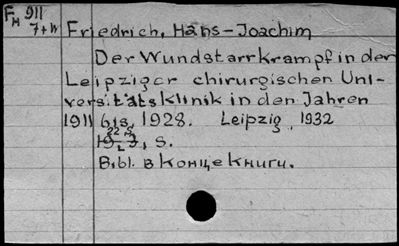 FM 911
7+W
Friedrich, Hans-Joachim
Der Wundstarrkrampf in der
Leipziger chirurgischen Uni-
versitätsklinik in den Jahren
1911 bis 1928. Leipzig, 1932
22 S
S.
Bibl. в конце книги.